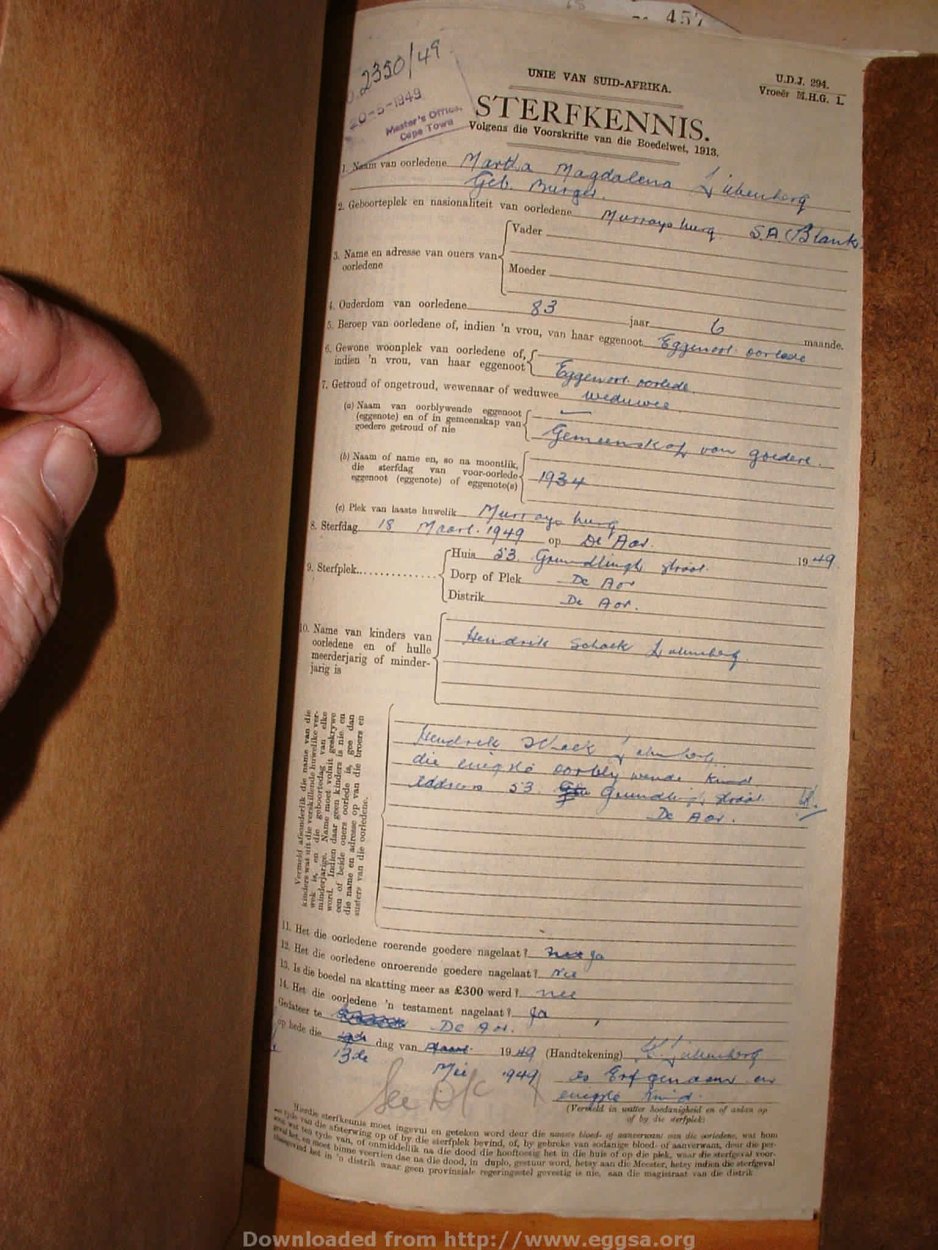 457
2350/49
20-5-1949
Master's Office,
Cape Town
UNIE VAN SUID-AFRIKA.
U.D.J. 294.
Vroeër M.H.G. 1.
STERFKENNIS.
Volgens die Voorskrifte van die Boedelwet, 1913.
1. Naam van oorledene Martha Magdalena Liebenberg
Geb. Burger.
2. Geboorteplek en nasionaliteit van oorledene Murraysburg S.A. (Blank)
3. Name en adresse van ouers van oorledene
Vader
Moeder
4. Ouderdom van oorledene 83 jaar 6 maande.
5. Beroep van oorledene of, indien 'n vrou, van haar eggenoot Eggenoot oorlede
6. Gewone woonplek van oorledene of,
indien 'n vrou, van haar eggenoot Eggenoot oorlede.
7. Getroud of ongetroud, wewenaar of weduwee weduwee
(a) Naam van oorblywende eggenoot
(eggenote) en of in gemeenskap van
goedere getroud of nie Gemeenskap van goedere.
(b) Naam of name en, so na moontlik,
die sterfdag van voor-oorlede
eggenoot (eggenote) of eggenote(s) 1934
(c) Plek van laaste huwelik Murraysburg
8. Sterfdag 18 Maart 1949 op De Aar. 1949
9. Sterfplek
Huis 53 Grundlingh straat
Dorp of Plek De Aar
Distrik De Aar.
10. Name van kinders van
oorledene en of hulle
meerderjarig of minder-
jarig is
Hendrik Schalk Liebenberg
Vermeld afsonderlik die name van die
kinders wat uit die verskillende huwelike ver-
wek is, en die geboortedag van elke
minderjarige. Name moet voluit geskrywe
word. Indien daar geen kinders is nie en
een of beide ouers oorlede is, gee dan
die name en adresse op van die broers en
susters van die oorledene.
Hendrik Schalk Liebenberg
die enigste oorblywende kind
address 53 Grundlingh straat
De Aar.
11. Het die oorledene roerende goedere nagelaat? ja
12. Het die oorledene onroerende goedere nagelaat? Nee
13. Is die boedel na skatting meer as £300 werd? nee
14. Het die oorledene 'n testament nagelaat? Ja
Gedateer te De Aar.
op hede die dag van 1949 (Handtekening) Liebenberg
13de Mei 1949 as Erfgenaam en
enigste kind.
(Vermeld in watter hoedanigheid en of aldan op
of by die sterfplek)
Hierdie sterfkennis moet ingevul en geteken word deur die naaste bloed- of aanverwant van die oorledene, wat hom
ten tyde van die afsterwing op of by die sterfplek bevind, of, by gebreke van sodanige bloed- of aanverwant, deur die per-
soon wat ten tyde van, of onmiddellik na die dood die hooftoesig het in die huis of op die plek, waar die sterfgeval voor-
geval het, en moet binne veertien dae na die dood, in duplo, gestuur word, hetsy aan die Meester, hetsy indien die sterfgeval
plaasgevind het in 'n distrik waar geen provinsiale regeringsetel gevestig is nie, aan die magistraat van die distrik
Downloaded from http://www.eggsa.org